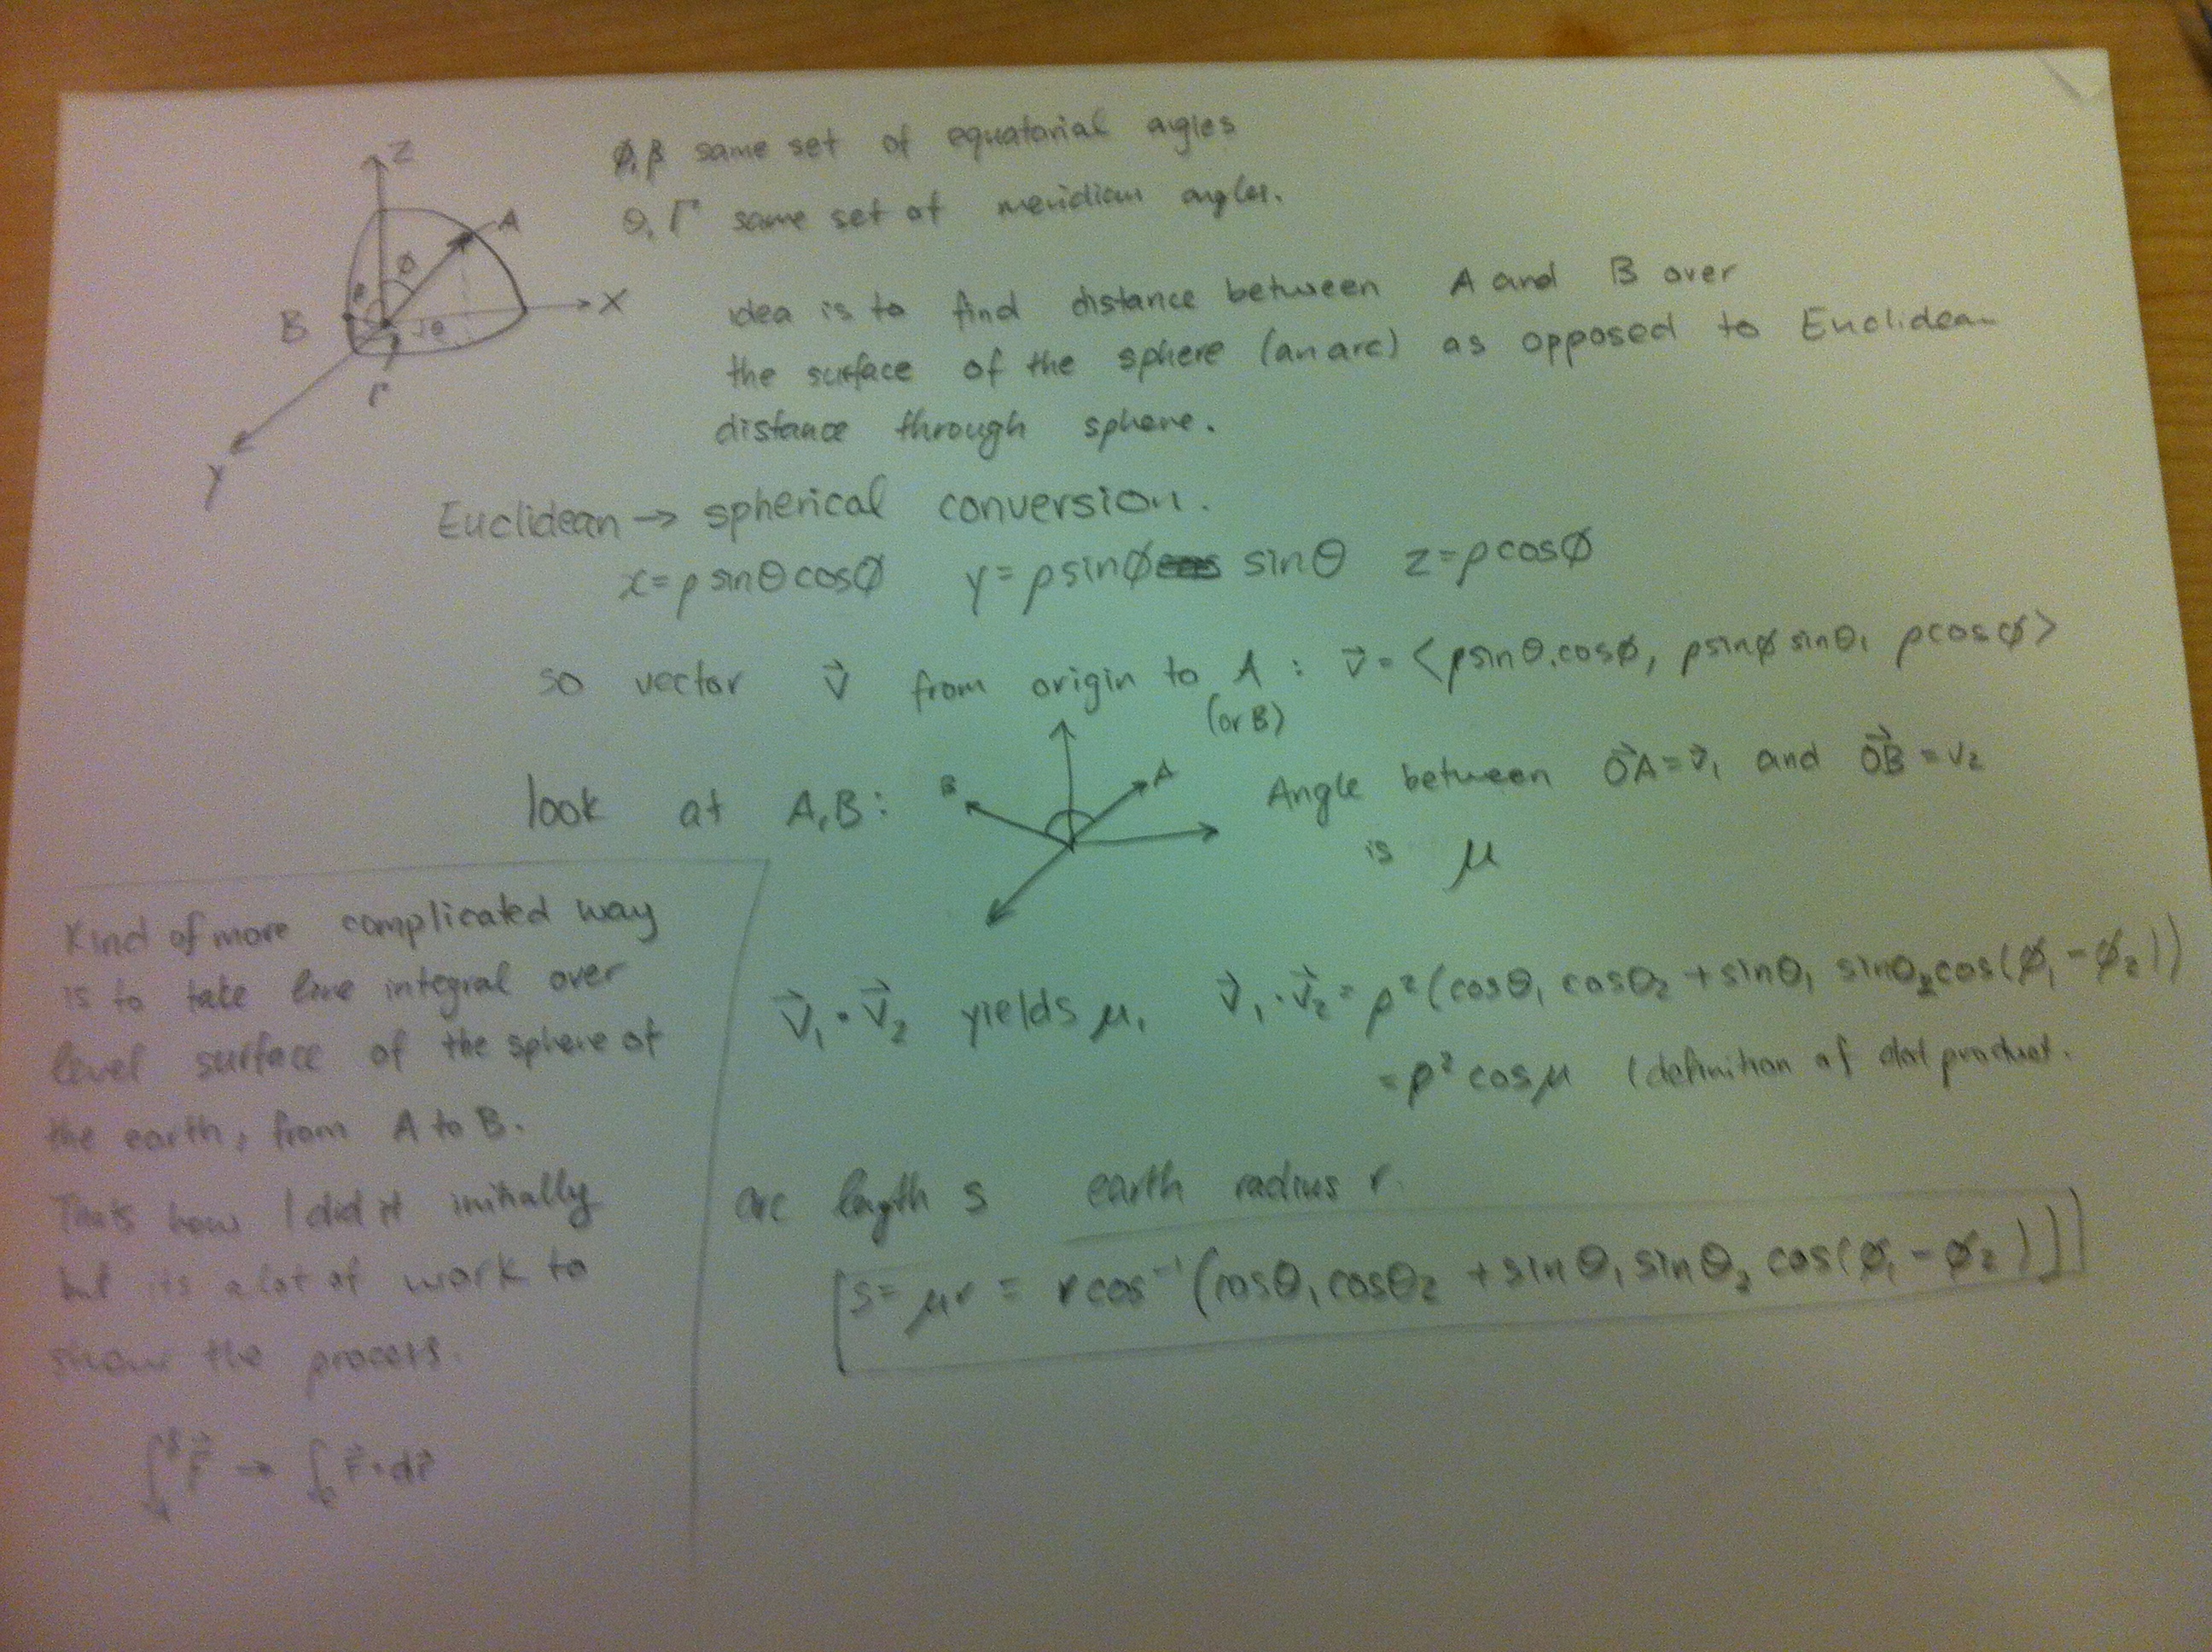 Z
A
ϕ
β
B
θ
Γ
X
Y
ϕ, β same set of equatorial angles
θ, Γ same set of meridian angles.
idea is to find distance between A and B over
the surface of the sphere (an arc) as opposed to Euclidean
distance through sphere.
Euclidean → spherical conversion.
x=ρ sinθcosϕ y=ρsinϕ sinθ z=ρcosϕ
so vector v⃗ from origin to A : v⃗ = <ρsinθ.cosϕ, ρsinϕ sinθ, ρcosϕ>
(or B)
look at A, B:
B
A
Angle between O⃗A = v⃗₁ and O⃗B = v₂
is μ
v⃗₁ · v⃗₂ yields μ, v⃗₁ · v⃗₂ = ρ²(cosθ₁ cosθ₂ + sinθ₁ sinθ₂cos(ϕ₁ - ϕ₂))
= ρ² cosμ (definition of dot product.
arc length s earth radius r.
[s= μr = rcos⁻¹(cosθ₁cosθ₂ + sinθ₁sinθ₂ cos(ϕ₁ - ϕ₂))]
Kind of more complicated way
is to take line integral over
level surface of the sphere of
the earth, from A to B.
Thats how I did it initially
but its a lot of work to
show the process.